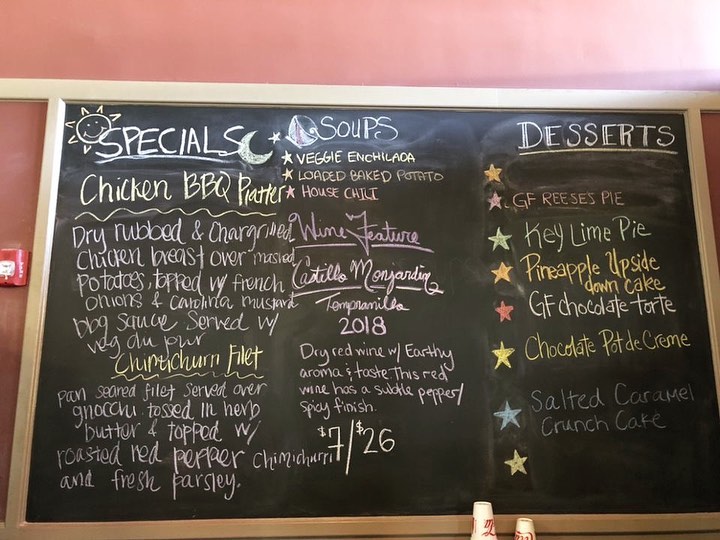 SPECIALS
Chicken BBQ Platter
Dry rubbed & Chargrilled
Chicken breast over mashed
potatoes, topped w/ french
onions & carolina mustard
bbq sauce served w/
veg du jour
Chimichurri Filet
pan seared filet served over
gnocchi tossed in herb
butter & topped w/
roasted red pepper chimichurri
and fresh parsley.
SOUPS
VEGGIE ENCHILADA
LOADED BAKED POTATO
HOUSE CHILI
Wine Feature
Castillo Monjardin
Tempranillo
2018
Dry red wine w/ Earthy
aroma & taste This red
wine has a subtle pepper/
spicy finish.
$7/$26
DESSERTS
GF REESE'S PIE
Key Lime Pie
Pineapple Upside
down cake
GF chocolate torte
Chocolate Pot de Creme
Salted Caramel
Crunch Cake